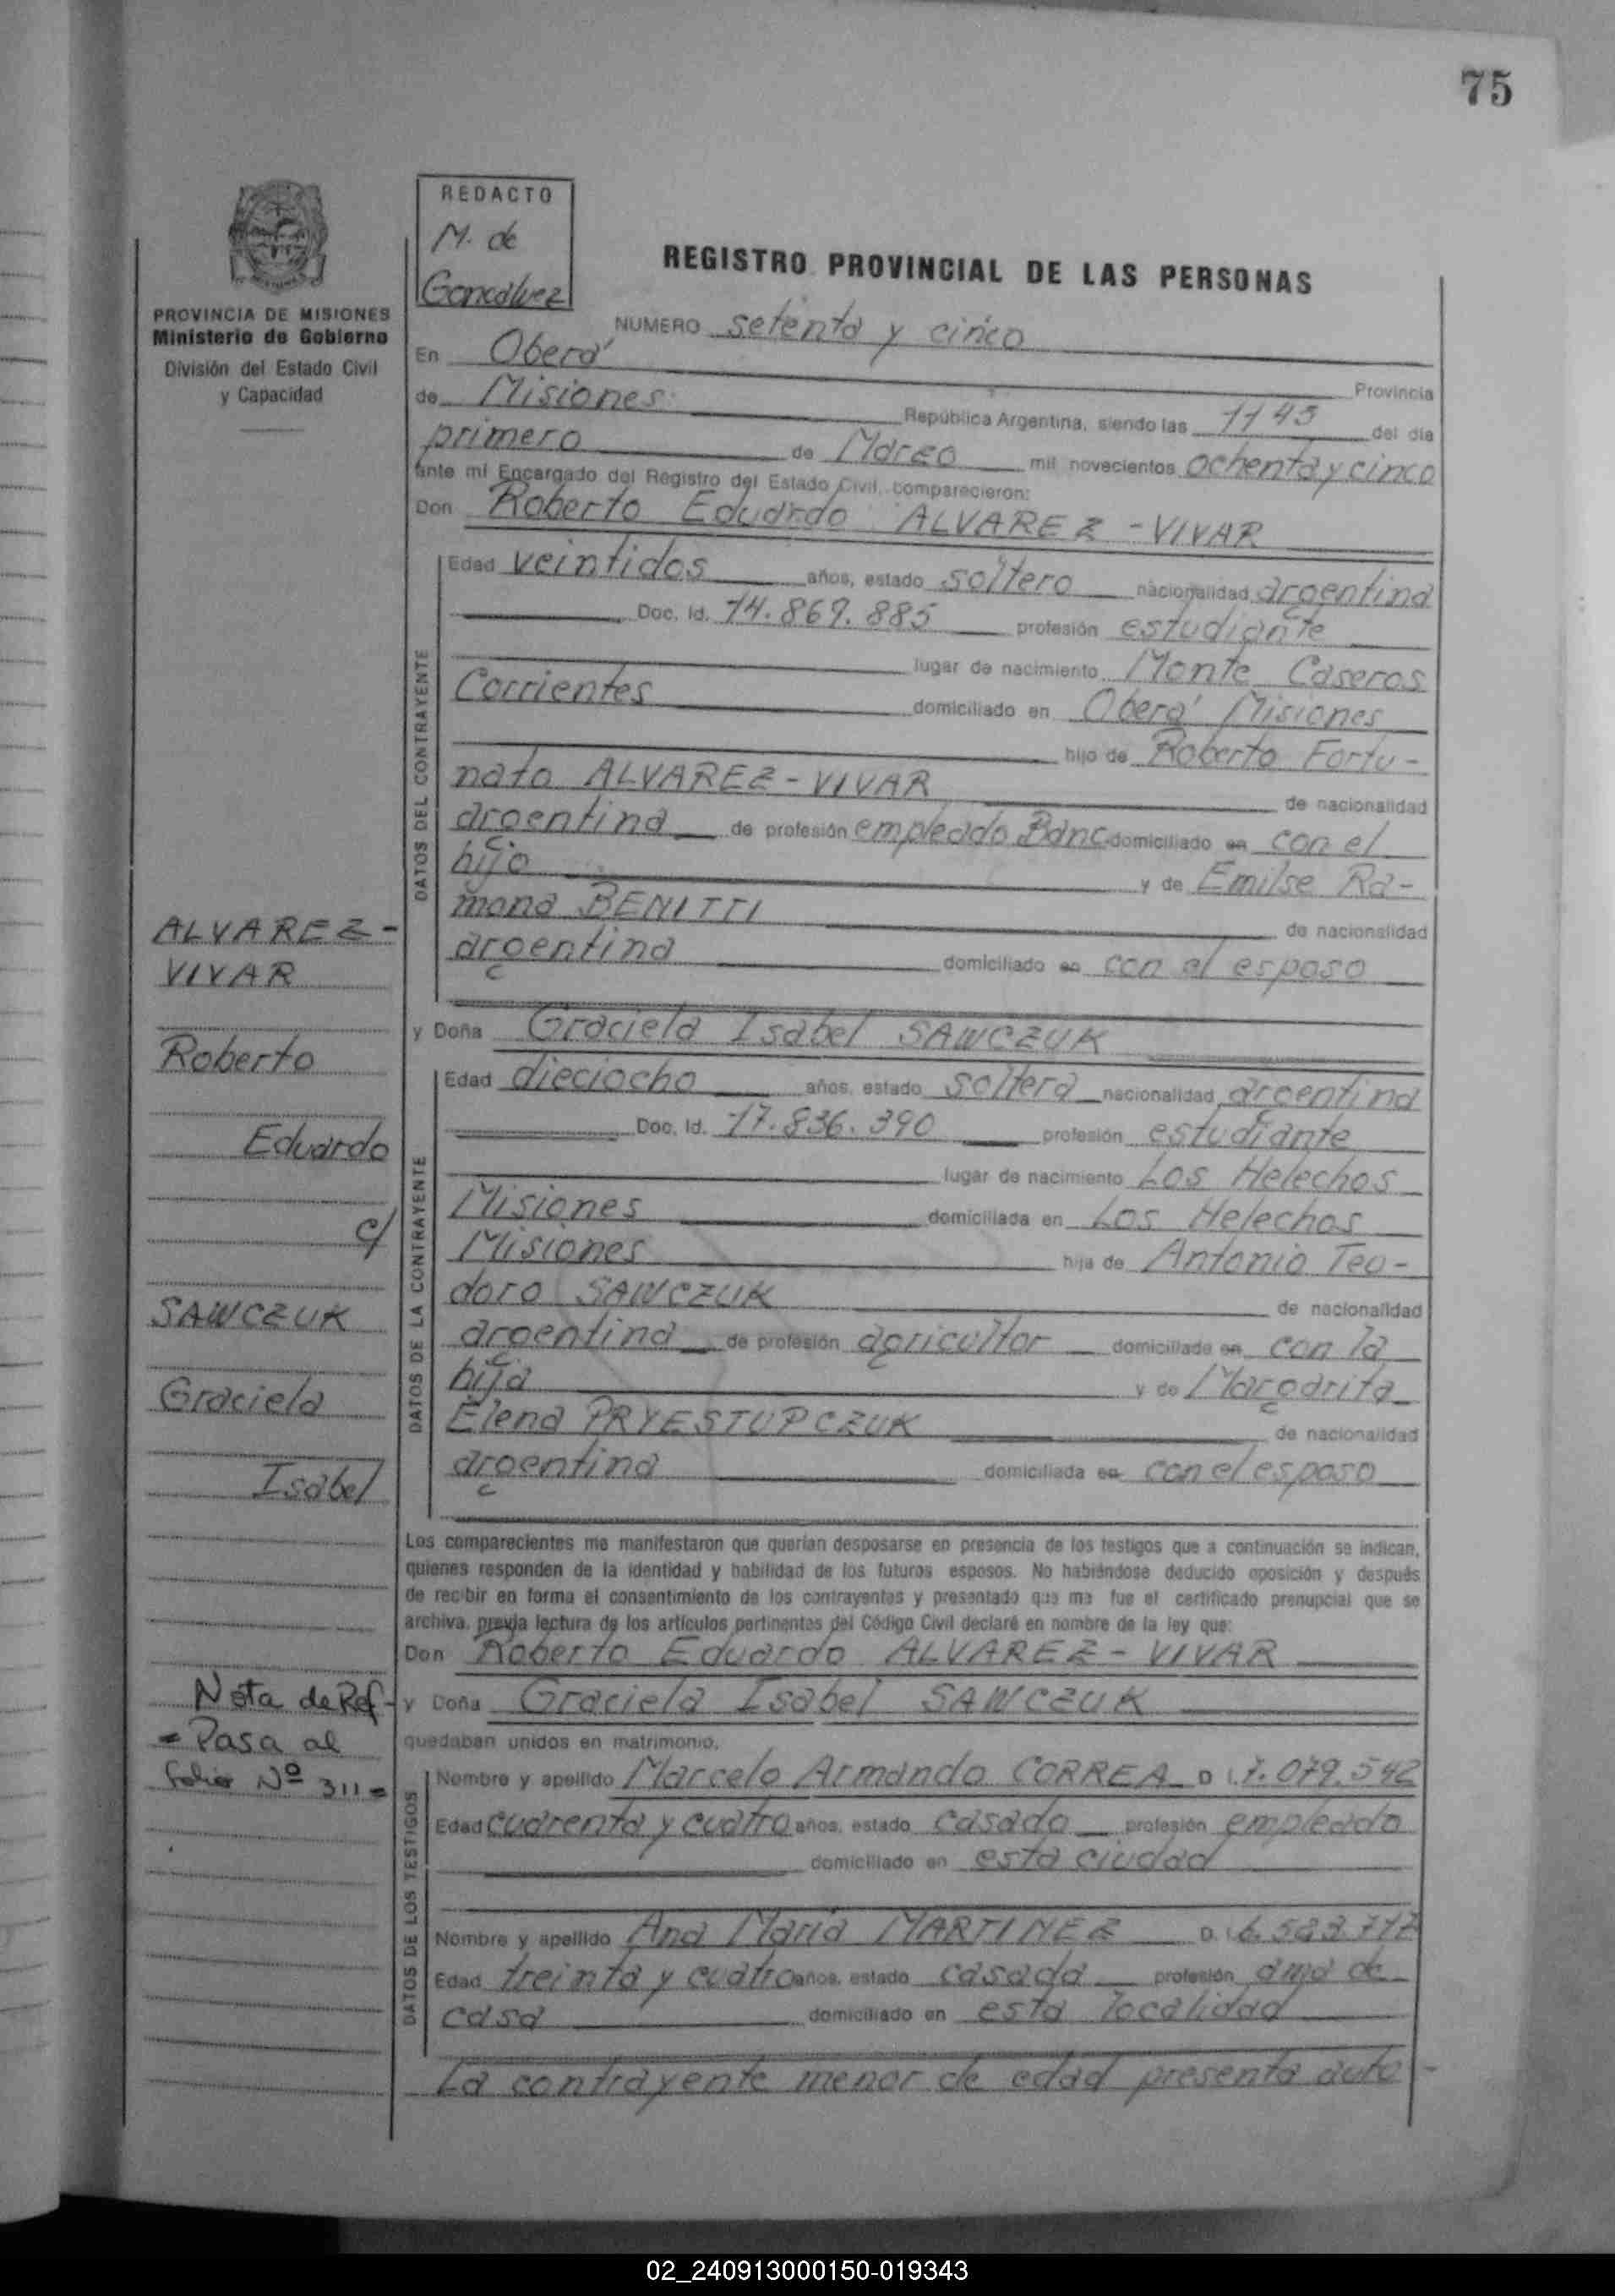 75
REDACTO
M. de
Goncalvez
PROVINCIA DE MISIONES
Ministerio de Gobierno
División del Estado Civil
y Capacidad
REGISTRO PROVINCIAL DE LAS PERSONAS
NUMERO setenta y cinco
En Oberá Provincia
de Misiones República Argentina, siendo las 1145 del día
primero de Marzo mil novecientos ochenta y cinco
ante mi Encargado del Registro del Estado Civil, comparecieron:
Don Roberto Eduardo ALVAREZ - VIVAR
DATOS DEL CONTRAYENTE
Edad veintidos años, estado soltero nacionalidad argentina
Doc. Id. 14.869.885 profesión estudiante
lugar de nacimiento Monte Caseros
Corrientes domiciliado en Oberá Misiones
hijo de Roberto Fortu-
nato ALVAREZ - VIVAR de nacionalidad
argentina de profesión empleado Banc. domiciliado en con el
hijo y de Emilse Ra-
mona BENITTI de nacionalidad
argentina domiciliado en con el esposo
y Doña Graciela Isabel SAWCZUK
DATOS DE LA CONTRAYENTE
Edad dieciocho años, estado soltera nacionalidad argentina
Doc. Id. 17.836.390 profesión estudiante
lugar de nacimiento Los Helechos
Misiones domiciliada en Los Helechos
Misiones hija de Antonio Teo-
doro SAWCZUK de nacionalidad
argentina de profesión agricultor domiciliado en con la
hija y de Margarita
Elena PRYESTUPCZUK de nacionalidad
argentina domiciliada en con el esposo
Los comparecientes me manifestaron que querían desposarse en presencia de los testigos que a continuación se indican,
quienes responden de la identidad y habilidad de los futuros esposos. No habiéndose deducido oposición y después
de recibir en forma el consentimiento de los contrayentes y presentado que me fue el certificado prenupcial que se
archiva, previa lectura de los artículos pertinentes del Código Civil declaré en nombre de la ley que:
Don Roberto Eduardo ALVAREZ - VIVAR
y Doña Graciela Isabel SAWCZUK
quedaban unidos en matrimonio.
DATOS DE LOS TESTIGOS
Nombre y apellido Marcelo Armando CORREA D.I. 7.079.542
Edad cuarenta y cuatro años, estado casado profesión empleado
domiciliado en esta ciudad
Nombre y apellido Ana María MARTINEZ D.I. 6.583.717
Edad treinta y cuatro años, estado casada profesión ama de
casa domiciliado en esta localidad
La contrayente menor de edad presenta auto-
ALVAREZ -
VIVAR
Roberto
Eduardo
c/
SAWCZUK
Graciela
Isabel
Nota de Ref-
= Pasa al
folio Nº 311=
02_240913000150-019343